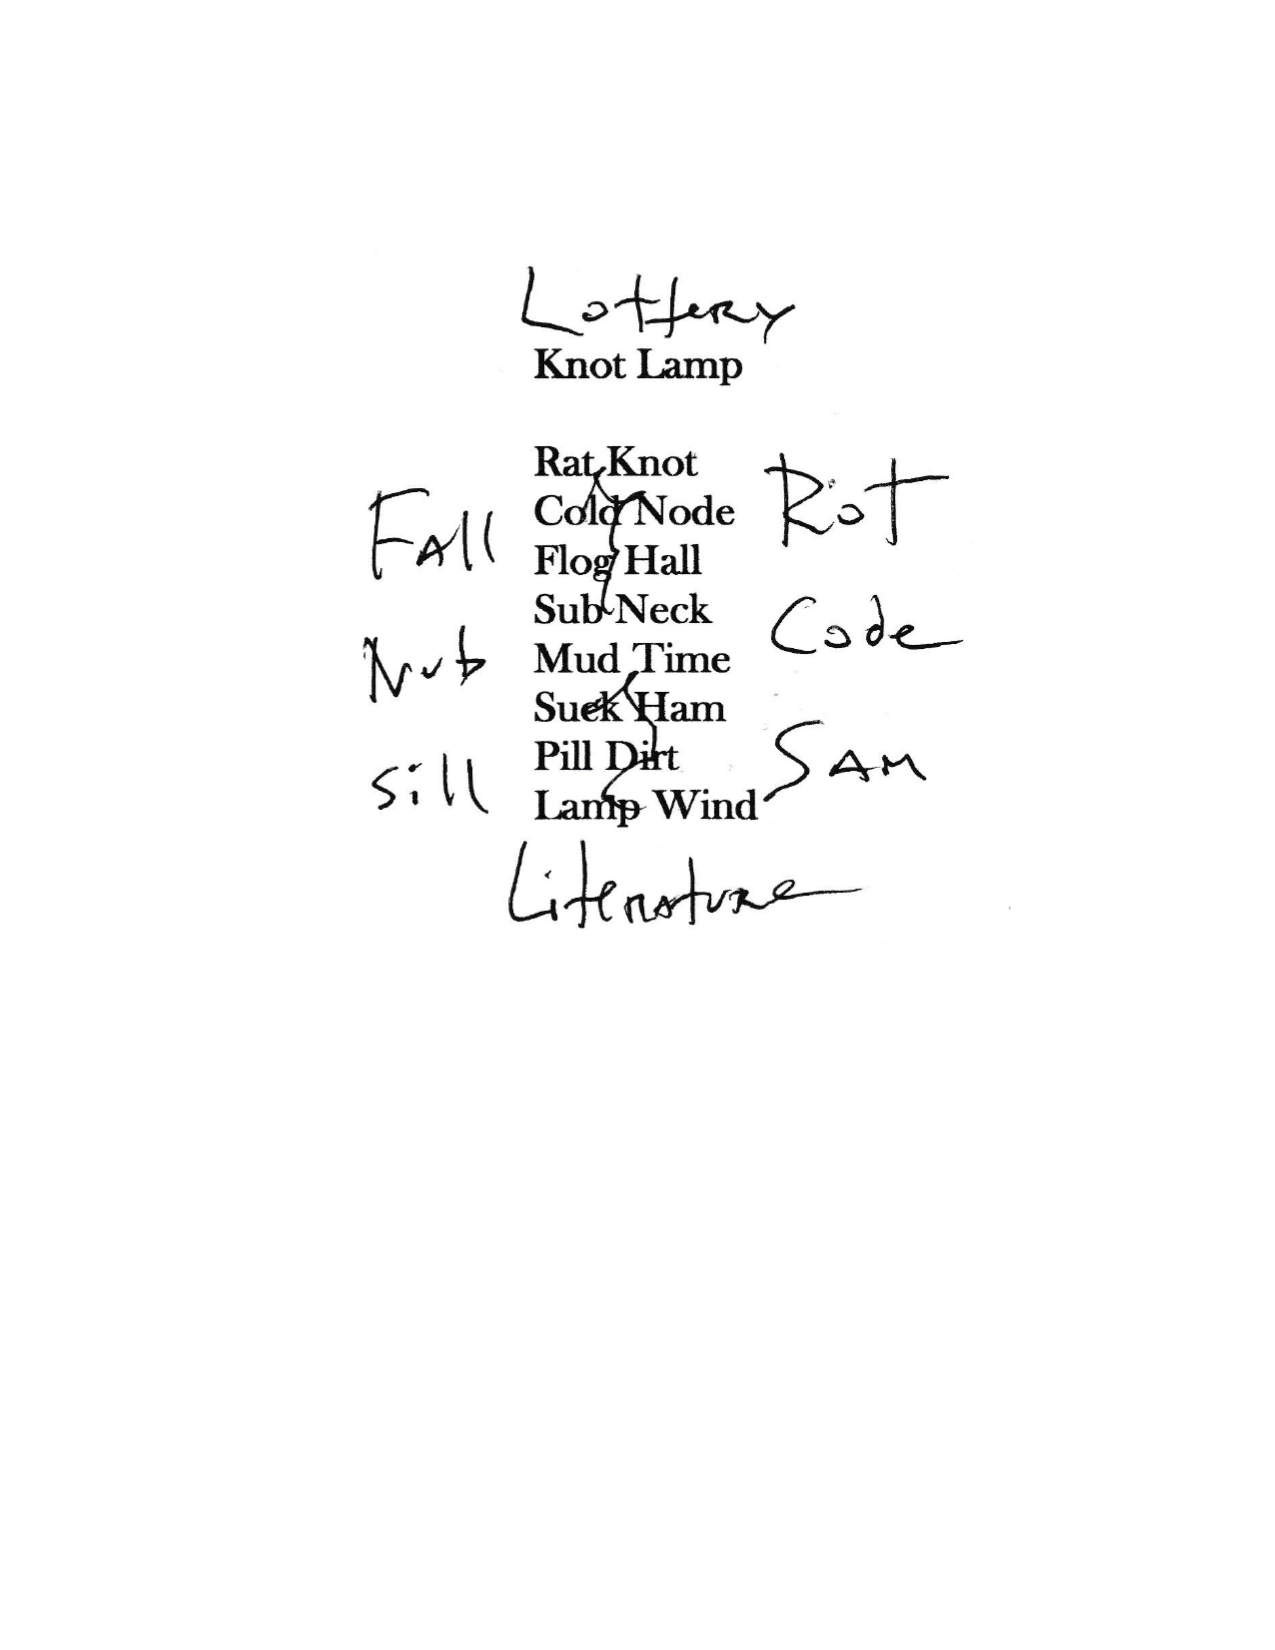 Lottery
Knot Lamp
Rat Knot
Cold Node
Rot
Fall
Flog Hall
Sub Neck
Code
Nub
Mud Time
Suck Ham
Pill Dirt
SAM
Sill
Lamp Wind
Literature